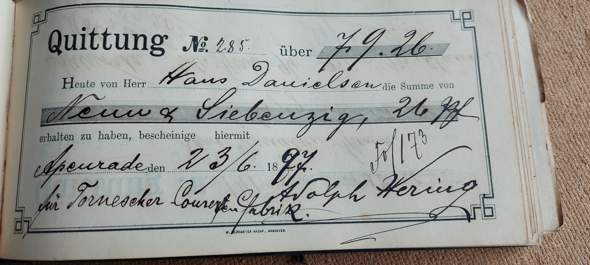 Quittung No. 285. über 79.26.
Heute von Herr Hans Danielsen die Summe von
Neun & Siebenzig, 26 Pf
erhalten zu haben, bescheinige hiermit
Apenrade den 23/6. 1897.
Fol 173
für Tornescher Adolph Hering
Fabrik.